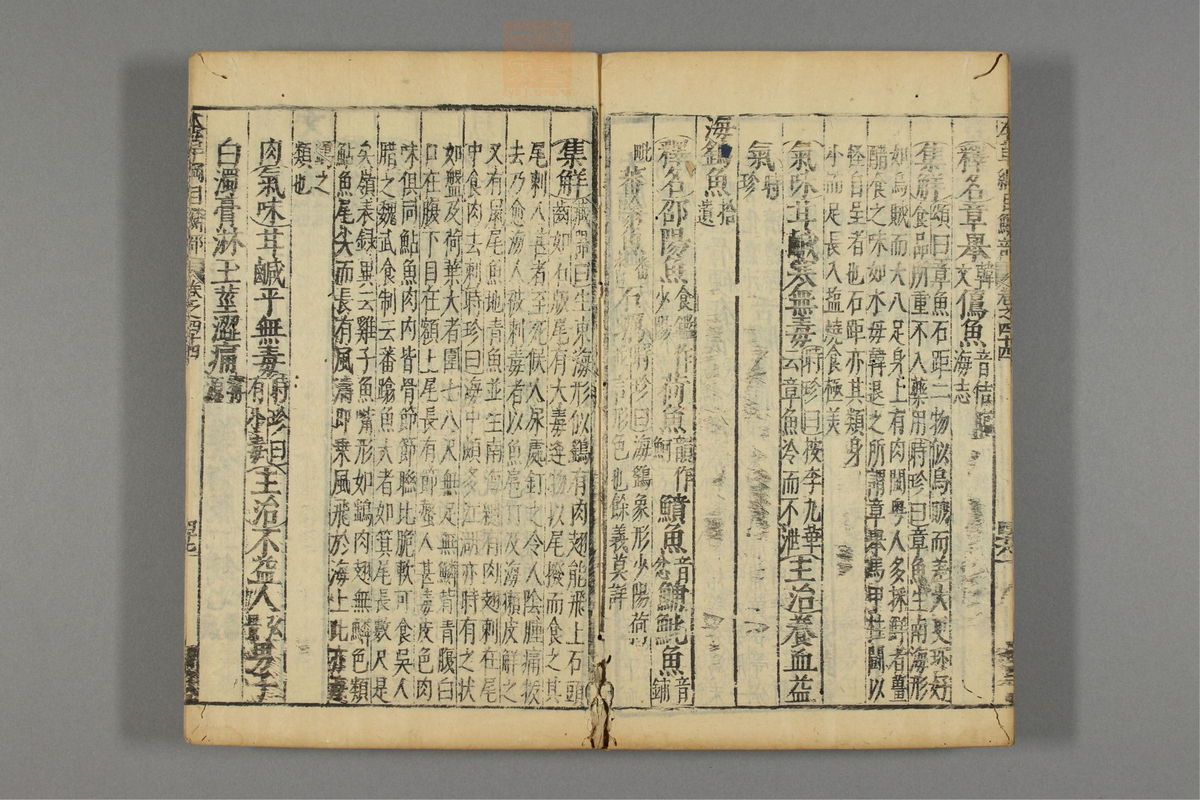 釋名章舉韓文 僪魚音佶 海志
集解頌曰章魚石距二物似烏賊而差大更珍好
食品所重不入藥用時珍曰章魚生南海形
如烏賊而大八足身上有肉閩粤人多採鮮者薑
醋食之味如水母韓退之所謂章舉馬甲柱鬪以
怪自呈者也石距亦其類身
小而足長入鹽燒食極美
氣味甘鹹寒無毒時珍曰按李九華云章魚冷而不泄主治養血益
氣時珍
海鷂魚拾遺
釋名邵陽魚食鑑作少陽 荷魚 鱝魚音忿 鯆魮魚音鋪
毗 蕃
時珍曰海鷂象形少陽荷
形色也餘義莫詳
集解藏器曰生東海形似鷂有肉翅能飛上石頭
齒如石版尾有大毒逢物以尾撥而食之其
尾刺人甚者至死候人尿處釘之令人陰腫痛拔
去乃愈海人被刺毒者以魚扈竹及海獺皮解之
又有鼠尾魚地青魚並生南海總有肉翅刺在尾
中食肉去刺時珍曰海中頗多江湖亦時有之狀
如盤及荷葉大者圍七八尺無足無鱗背青腹白
口在腹下目在額上尾長有節螫人甚毒皮色肉
味俱同鮎魚肉內皆骨節節聯比脆軟可食吳人
腊之魏武食制云蕃踰魚大者如箕尾長數尺是
矣嶺表錄異云雞子魚嘴形如鷂肉翅無鱗色類
鮎魚尾尖而長有風濤卽乗風飛於海上此亦
之
類也
肉氣味甘鹹平無毒時珍曰有小毒主治不益人 男子
白濁膏淋玉莖澀痛